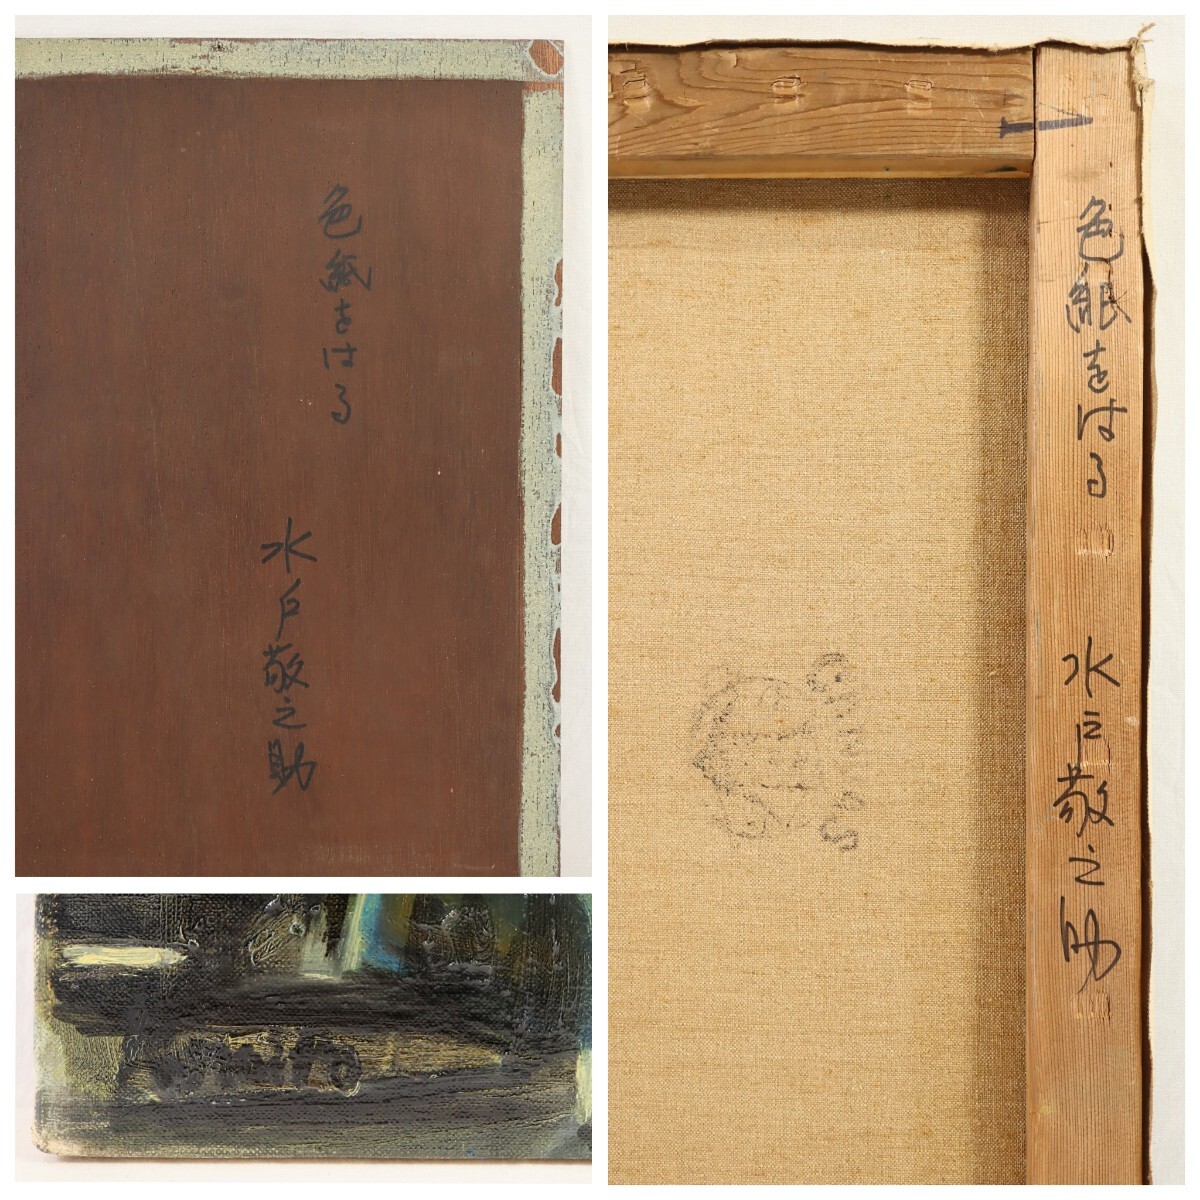 色紙をはる
水戸敬之助
色紙をはる
水戸敬之助